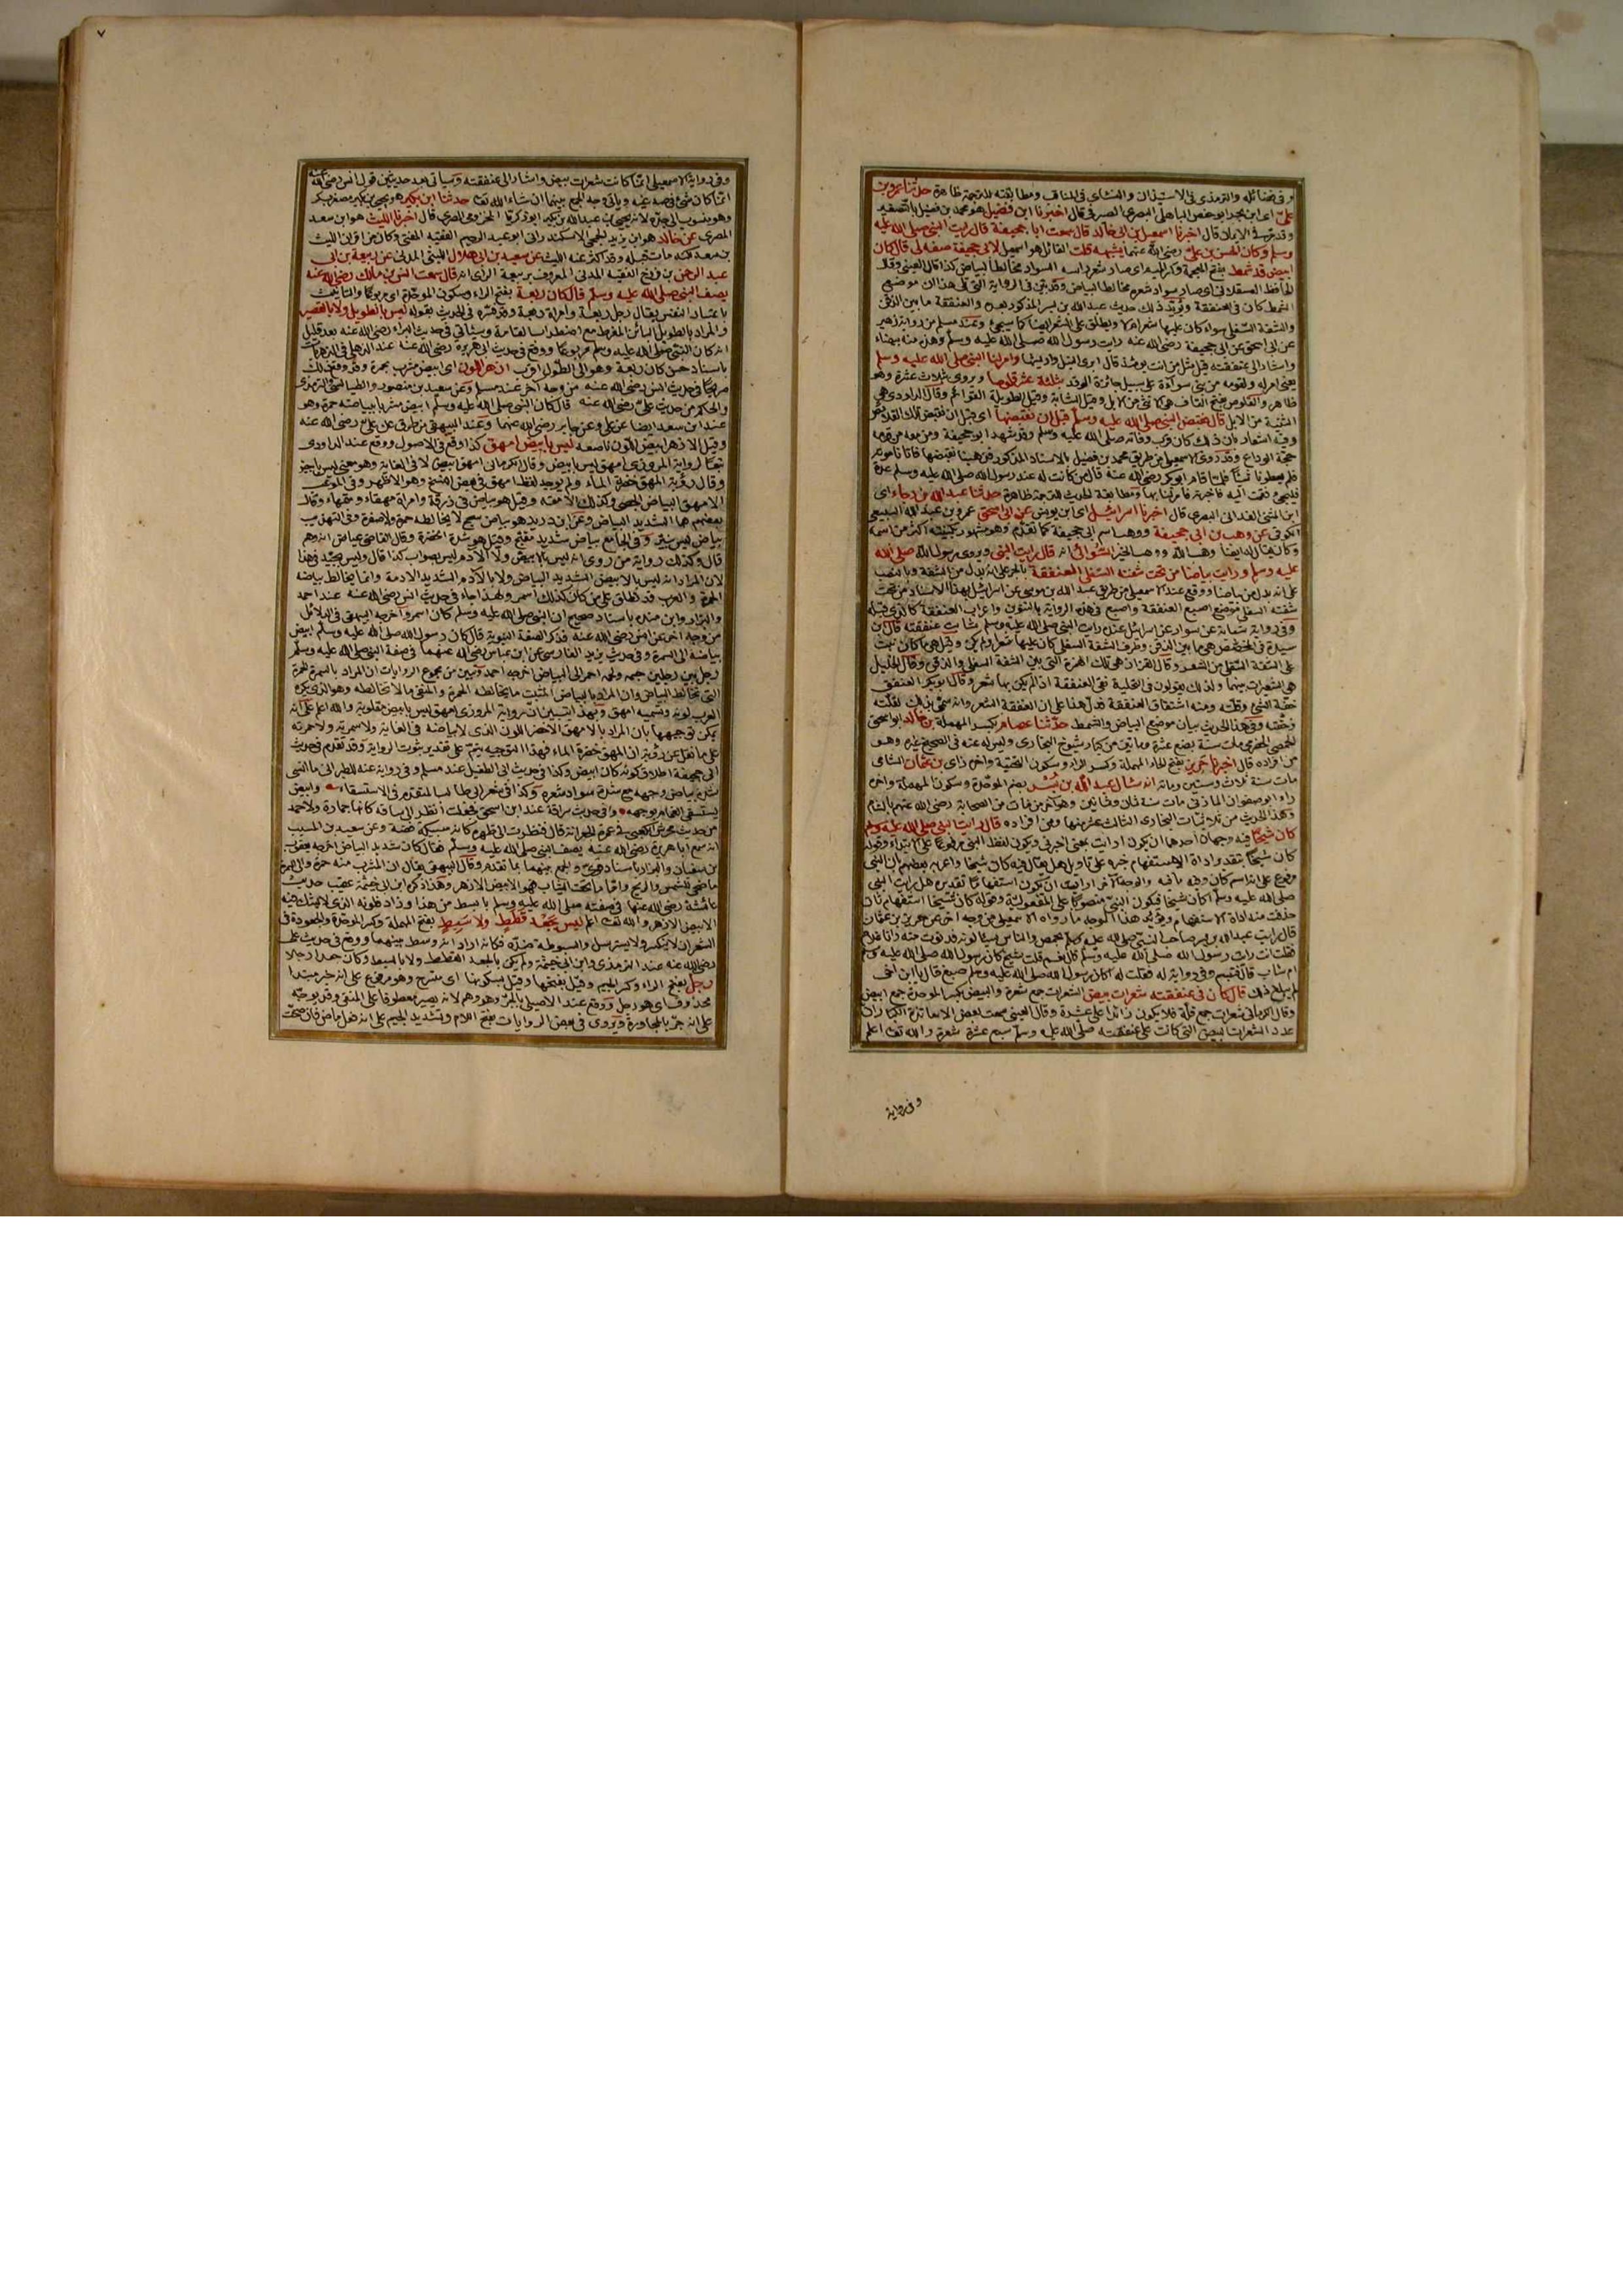 وفي فضائله والترمذي في الاستيذان والنسائي في المناقب ومطابقته للترجمة ظاهرة حدثنا عمرو بن
علي اي ابن بحر ابو حفص الباهلي البصري الصيرفي قال اخبرنا ابن فضيل هو محمد بن فضيل بالتصغير
وقد مر في الايمان قال اخبرنا اسمعيل بن ابي خالد قال سمعت ابا جحيفة قال رايت النبي صلى الله عليه
وسلم وكان الحسن بن علي رضي الله عنهما يشبهه قلت القائل هو اسمعيل لابي جحيفة صفه لي قال كان
ابيض قد شمط بفتح المعجمة وكسر الميم اي صار شعر راسه السواد مخالطا لبياض كذا قال العيني وقال
الحافظ العسقلاني اي صار سواد شعره مخالطا لبياض وقد بين في الرواية التي تلي هذا ان موضع
الشمط كان في العنفقة ويؤيد ذلك حديث عبد الله بن بسر المذكور بعده والعنفقة ما بين الذقن
والشفة السفلى سواء كان عليها شعر ام لا ويطلق على الشعر ايضا كما سيجيء وعند مسلم من رواية زهير
عن ابي اسحق عن ابي جحيفة رضي الله عنه رايت رسول الله صلى الله عليه وسلم وهذه منه بيضاء
واشار الى عنفقته قيل مثل من انت يومئذ قال ابري النبل واريشها وامر لنا النبي صلى الله عليه وسلم
يعني امر له ولقومه من بني سواءة على سبيل جائزة الوفد بثلثة عشر قلوصا ويروى ثلاث عشرة وهو
ظاهر والقلوص بفتح القاف هي الانثى من الابل وقيل الشابة وقيل الطويلة القوائم وقال الداودي هي
الثنية من الابل قال فقبض النبي صلى الله عليه وسلم قبل ان نقبضها اي قبل ان نقبض تلك القلائص
وفيه اشعار بان ذلك كان قرب وفاته صلى الله عليه وسلم وقد شهد ابو جحيفة ومن معه من قومه
حجة الوداع وقد روى الاسمعيلي من طريق محمد بن فضيل بالاسناد المذكور فذهبنا نقبضها فاتانا موته
فلم يعطونا شيئا فلما قام ابو بكر رضي الله عنه قال من كانت له عند رسول الله صلى الله عليه وسلم عدة
فليجئ فقمت اليه فاخبرته فامر لنا بها ومطابقة الحديث للترجمة ظاهرة حدثنا عبد الله بن رجاء اي
ابن المثنى الغداني البصري قال اخبرنا اسرائيل اي ابن يونس عن ابي اسحق عمرو بن عبد الله السبيعي
الكوفي عن وهب بن ابي جحيفة ووهب اسم ابي جحيفة كما تقدم وهو مشهور بكنيته اكثر من اسمه
وكان يقال له ايضا وهب الله ووهب الخير السوائي انه قال رايت النبي ويروى رسول الله صلى الله
عليه وسلم ورايت بياضا من تحت شفته السفلى العنفقة بالجر على انه بدل من الشفة وبالنصب
على انه بدل من بياضا ووقع عند الاسمعيلي من طريق عبيد الله بن موسى عن اسرائيل بهذا الاسناد من تحت
شفته السفلى موضع اصبع العنفقة واصبع في هذه الرواية بالتنوين واعراب العنفقة كالذي قبله
وفي رواية شبابة بن سوار عن اسرائيل عنده رايت النبي صلى الله عليه وسلم شابت عنفقته قال ابن
سيده في المخصص هي ما بين الذقن وطرف الشفة السفلى كان عليها شعر او لم يكن وقيل هي ما كان نبت
على الشفة السفلى من الشعر وقال القزاز هي تلك الهمزة التي بين الشفة السفلى والذقن وقال الخليل
هي الشعيرات بينهما ولذلك يقولون في التحلية نقي العنفقة اذا لم يكن بها شعر وقال ابو بكر العنفق
خفة الشيء وقلته ومنه اشتقاق العنفقة فدل هذا على ان العنفقة الشعر وانه سمي بذلك لقلته
وخفته وفي هذا الحديث بيان موضع البياض والشمط حدثنا عصام بكسر المهملة بن خالد ابو اسحق
الحمصي الحضرمي مات سنة بضع عشرة ومائتين من كبار شيوخ البخاري وليس له عنه في الصحيح غيره وهو
من افراده قال اخبرنا حريز بفتح الحاء المهملة وكسر الراء وسكون التحتية واخره زاي بن عثمان الشامي
مات سنة ثلاث وستين ومائة انه سأل عبد الله بن بسر بضم الموحدة وسكون المهملة واخره
راء ابو صفوان المازني مات سنة ثمان وثمانين وهو اخر من مات من الصحابة رضي الله عنهم بالشام
وهذا الحديث من ثلاثيات البخاري الثالث عشر منها ومن افراده قال ارايت النبي صلى الله عليه وسلم
كان شيخا فيه وجهان احدهما ان يكون ارايت بمعنى اخبرني ويكون لفظ النبي مرفوعا على الابتداء وقوله
كان شيخا بتقدير اداة الاستفهام خبره على تاويل هل يقال فيه كان شيخا واعربه بعضهم ان النبي
مرفوع على انه اسم كان وفيه ما فيه والوجه الآخر ارايت ان يكون استفهاما تقديره هل رايت النبي
صلى الله عليه وسلم اكان شيخا فيكون النبي منصوبا على المفعولية وقوله كان شيخا استفهام ثان
حذفت منه اداة الاستفهام ويؤيد هذا الوجه ما رواه الاسمعيلي من وجه آخر عن حريز بن عثمان
قال رايت عبد الله بن بسر صاحب النبي صلى الله عليه وسلم بحمص والناس يسألونه فدنوت منه وانا غلام
فقلت انت رايت رسول الله صلى الله عليه وسلم قال نعم قلت شيخ كان رسول الله صلى الله عليه وسلم
ام شاب قال فتبسم وفي رواية له فقلت له اكان رسول الله صلى الله عليه وسلم صبغ قال يا ابن اخي
لم يبلغ ذلك قال كان في عنفقته شعرات بيض الشعرات جمع شعرة والبيض بكسر الموحدة جمع ابيض
وقال الكرماني شعرات جمع قلة فلا يكون زائدا على عشرة وقال العيني سمعت بعض الاساتذة الكبار ان
عدد الشعرات البيض التي كانت على عنفقته صلى الله عليه وسلم سبع عشرة شعرة والله تعالى اعلم
وفي رواية
٧
وفي رواية الاسمعيلي انما كانت شعرات بيض واشار الى عنفقته وسياتي بعد حديثين قول انس رضي الله عنه
انما كان شيء في صدغيه وياتي وجه الجمع بينهما ان شاء الله تعالى حدثنا ابن بكير هو يحيى بن بكير مصغر بكر
وهو منسوب الى جده لانه يحيى بن عبد الله بن بكير ابو زكريا المخزومي المصري قال اخبرنا الليث هو ابن سعد
المصري عن خالد هو ابن يزيد الجمحي الاسكندراني ابو عبد الرحيم الفقيه المفتي وكان من اقران الليث
بن سعد لكنه مات قبله وقد اكثر عنه الليث عن سعيد بن ابي هلال الليثي المدني عن ربيعة بن ابي
عبد الرحمن بن فروخ الفقيه المدني المعروف بربيعة الرأي انه قال سمعت انس بن مالك رضي الله عنه
يصف النبي صلى الله عليه وسلم قال كان ربعة بفتح الراء وسكون الموحدة اي مربوعا والتانيث
باعتبار النفس يقال رجل ربعة وامراة ربعة وقد فسره في الحديث بقوله ليس بالطويل ولا بالقصير
والمراد بالطويل البائن المفرط مع اضطراب القامة وسياتي في حديث البراء رضي الله عنه بعد قليل
انه كان النبي صلى الله عليه وسلم مربوعا ووقع في حديث ابي هريرة رضي الله عنه عند الذهلي في الزهريات
باسناد حسن كان ربعة وهو الى الطول اقرب ازهر اللون اي ابيض مشرب بحمرة وقد وقع ذلك
صريحا في حديث انس رضي الله عنه من وجه آخر عند مسلم وعن سعيد بن منصور والطيالسي والترمذي
والحاكم من حديث علي رضي الله عنه قال كان النبي صلى الله عليه وسلم ابيض مشربا بياضه حمرة وهو
عند ابن سعد ايضا عن علي وعن جابر رضي الله عنهما وعند البيهقي من طرق عن علي رضي الله عنه
وقيل الازهر ابيض اللون ناصعه ليس بابيض امهق كذا وقع في الاصول ووقع عند الداودي
تبعا لرواية المروزي امهق ليس بابيض وقال الكرماني امهق ابيض لا في الغاية وهو معنى ليس بابيض
وقال رؤبة المهق خضرة الماء ولم يوجد لفظ امهق في بعض النسخ وهو الاظهر وفي الموعب
الامهق البياض الجصي وكذلك الامقه وقيل هو بياض في زرقة وامراة مهقاء ومقهاء وقال
بعضهم هما الشديد البياض وعن ابن دريد هو بياض سمج لا يخالطه حمرة ولا صفرة وفي التهذيب
بياض ليس بنير وفي الجامع بياض شديد مفتح وقيل هو شدة الخضرة وقال القاضي عياض انه وهم
قال وكذلك رواية من روى انه ليس بالابيض ولا الآدم ليس بصواب كذا قال وليس بجيد في هذا
لان المراد انه ليس بالابيض الشديد البياض ولا بالآدم الشديد الادمة وانما يخالط بياضه
الحمرة والعرب قد تطلق على من كان كذلك اسمر ولهذا جاء في حديث انس رضي الله عنه عند احمد
والبزار وابن منده باسناد صحيح ان النبي صلى الله عليه وسلم كان اسمر واخرجه البيهقي في الدلائل
من وجه آخر عن انس رضي الله عنه فذكر الصفة النبوية قال كان رسول الله صلى الله عليه وسلم ابيض
بياضه الى السمرة وفي حديث يزيد الفارسي عن ابن عباس رضي الله عنهما في صفة النبي صلى الله عليه وسلم
رجل بين رجلين جسمه ولحمه احمر الى البياض اخرجه احمد وتبين من مجموع الروايات ان المراد بالسمرة الحمرة
التي تخالط البياض وان المراد بالبياض المثبت ما يخالطه الحمرة والمنفي ما لا تخالطه وهو الذي يكره
العرب لونه وتسميه امهق وبهذا يتبين ان رواية المروزي امهق ليس بابيض مقلوبة والله اعلم على انه
يمكن توجيهها بان المراد بالامهق الاخضر اللون الذي لا بياضه في الغاية ولا سمرته ولا حمرته
على ما نقل عن رؤبة ان المهق خضرة الماء فهذا التوجيه يتم على تقدير ثبوت الرواية وقد تقدم في حديث
ابي جحيفة اطلاق كونه كان ابيض وكذا في حديث ابي الطفيل عند مسلم وفي رواية عنه للطبراني ما انسى
شدة بياض وجهه مع شدة سواد شعره وكذا في شعر ابي طالب المتقدم في الاستسقاء وابيض
يستسقى الغمام بوجهه وفي حديث سراقة عند ابن اسحق فجعلت انظر الى ساقه كانها جمارة ولاحمد
من حديث محرش الكعبي في عمرة الجعرانة قال فنظرت الى ظهره كانه سبيكة فضة وعن سعيد بن المسيب
انه سمع ابا هريرة رضي الله عنه يصف النبي صلى الله عليه وسلم فقال كان شديد البياض اخرجه يعقوب
بن سفيان والبزار باسناد قوي والجمع بينهما بما تقدم وقال البيهقي يقال ان المشرب منه حمرة والى السمرة
ما ضحى للشمس والريح واما ما تحت الثياب فهو الابيض الازهر وهذا ذكره ابن ابي خيثمة عقيب حديث
عائشة رضي الله عنها في صفته صلى الله عليه وسلم بابسط من هذا وزاد فلونه الذي لا يشك فيه
الابيض الازهر والله تعالى اعلم ليس بجعد قطط ولا سبط بفتح المهملة وكسر الموحدة والجعودة في
الشعر ان لا يتكسر ولا يسترسل والسبوطة ضده فكانه اراد انه وسط بينهما ووقع في حديث علي
رضي الله عنه عند الترمذي وابن ابي خيثمة ولم يكن بالجعد القطط ولا بالسبط وكان جعدا رجلا
رجل بفتح الراء وكسر الجيم وقيل بفتحها وقيل بسكونها اي متسرح وهو مرفوع على انه خبر مبتدا
محذوف اي هو رجل ووقع عند الاصيلي بالجر وهو وهم لانه يصير معطوفا على المنفي وقد يوجه
على انه جر بالمجاورة ويروى في بعض الروايات بفتح اللام وتشديد الجيم على انه فعل ماض فان صحت